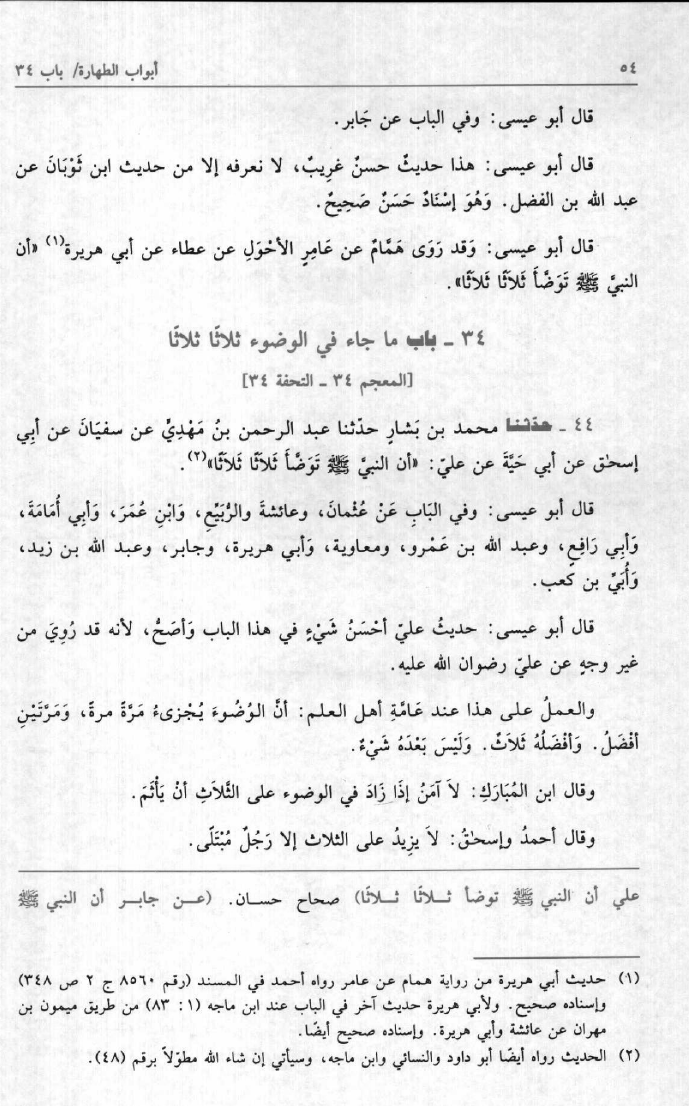 ٥٤ أبواب الطهارة/ باب ٣٤
قال أبو عيسى: وفي الباب عن جَابر.
قال أبو عيسى: هذا حديثٌ حسنٌ غريبٌ، لا نعرفه إلا من حديث ابن ثَوْبَانَ عن
عبد الله بن الفضل. وَهُوَ إسْنَادٌ حَسَنٌ صَحِيحٌ.
قال أبو عيسى: وَقد رَوَى هَمَّامٌ عن عَامِرٍ الأحْوَلِ عن عطاء عن أبي هريرة(١) «أن
النبيَّ ﷺ تَوَضَّأَ ثَلاَثًا ثَلاَثًا».
٣٤ ـ باب ما جاء في الوضوء ثلاثًا ثلاثًا
[المعجم ٣٤ ـ التحفة ٣٤]
٤٤ ـ حدّثنا محمد بن بَشارٍ حدّثنا عبد الرحمن بنُ مَهْدِيٍّ عن سفيَانَ عن أبِي
إسحٰق عن أبي حَيَّةَ عن عليّ: «أن النبيَّ ﷺ تَوَضَّأَ ثَلاَثًا ثَلاَثًا»(٢).
قال أبو عيسى: وفي البَابِ عَنْ عُثْمانَ، وعائشةَ والرُّبَيِّعِ، وَابْنِ عُمَرَ، وَأبي أُمَامَةَ،
وَأبي رَافِعٍ، وعبد الله بن عَمْرو، ومعاوية، وَأبي هريرة، وجابر، وعبد الله بن زيد،
وَأُبَيِّ بن كعب.
قال أبو عيسى: حديثُ عليّ أحْسَنُ شَيْءٍ في هذا الباب وَأصَحُّ، لأنه قد رُوِيَ من
غير وجهٍ عن عليّ رضوان الله عليه.
والعملُ على هذا عند عَامَّةِ أهل العلم: أنَّ الوُضُوءَ يُجْزِىءُ مَرَّةً مرةً، وَمَرَّتَيْنِ
أفْضَلُ. وَأفْضَلُهُ ثَلاَثٌ. وَلَيْسَ بَعْدَهُ شَيْءٌ.
وقال ابن المُبَارَكِ: لاَ آمَنُ إذَا زَادَ في الوضوء على الثَّلاَثِ أنْ يَأْثَمَ.
وقال أحمدُ وإسحٰقُ: لاَ يزِيدُ على الثلاث إلا رَجُلٌ مُبْتَلًى.
علي أن النبي ﷺ توضأ ثلاثًا ثلاثًا) صحاح حسان. (عن جابر أن النبي ﷺ
(١) حديث أبي هريرة من رواية همام عن عامر رواه أحمد في المسند (رقم ٨٥٦٠ ج ٢ ص ٣٤٨)
وإسناده صحيح. ولأبي هريرة حديث آخر في الباب عند ابن ماجه (١: ٨٣) من طريق ميمون بن
مهران عن عائشة وأبي هريرة. وإسناده صحيح أيضًا.
(٢) الحديث رواه أيضًا أبو داود والنسائي وابن ماجه، وسيأتي إن شاء الله مطوّلاً برقم (٤٨).